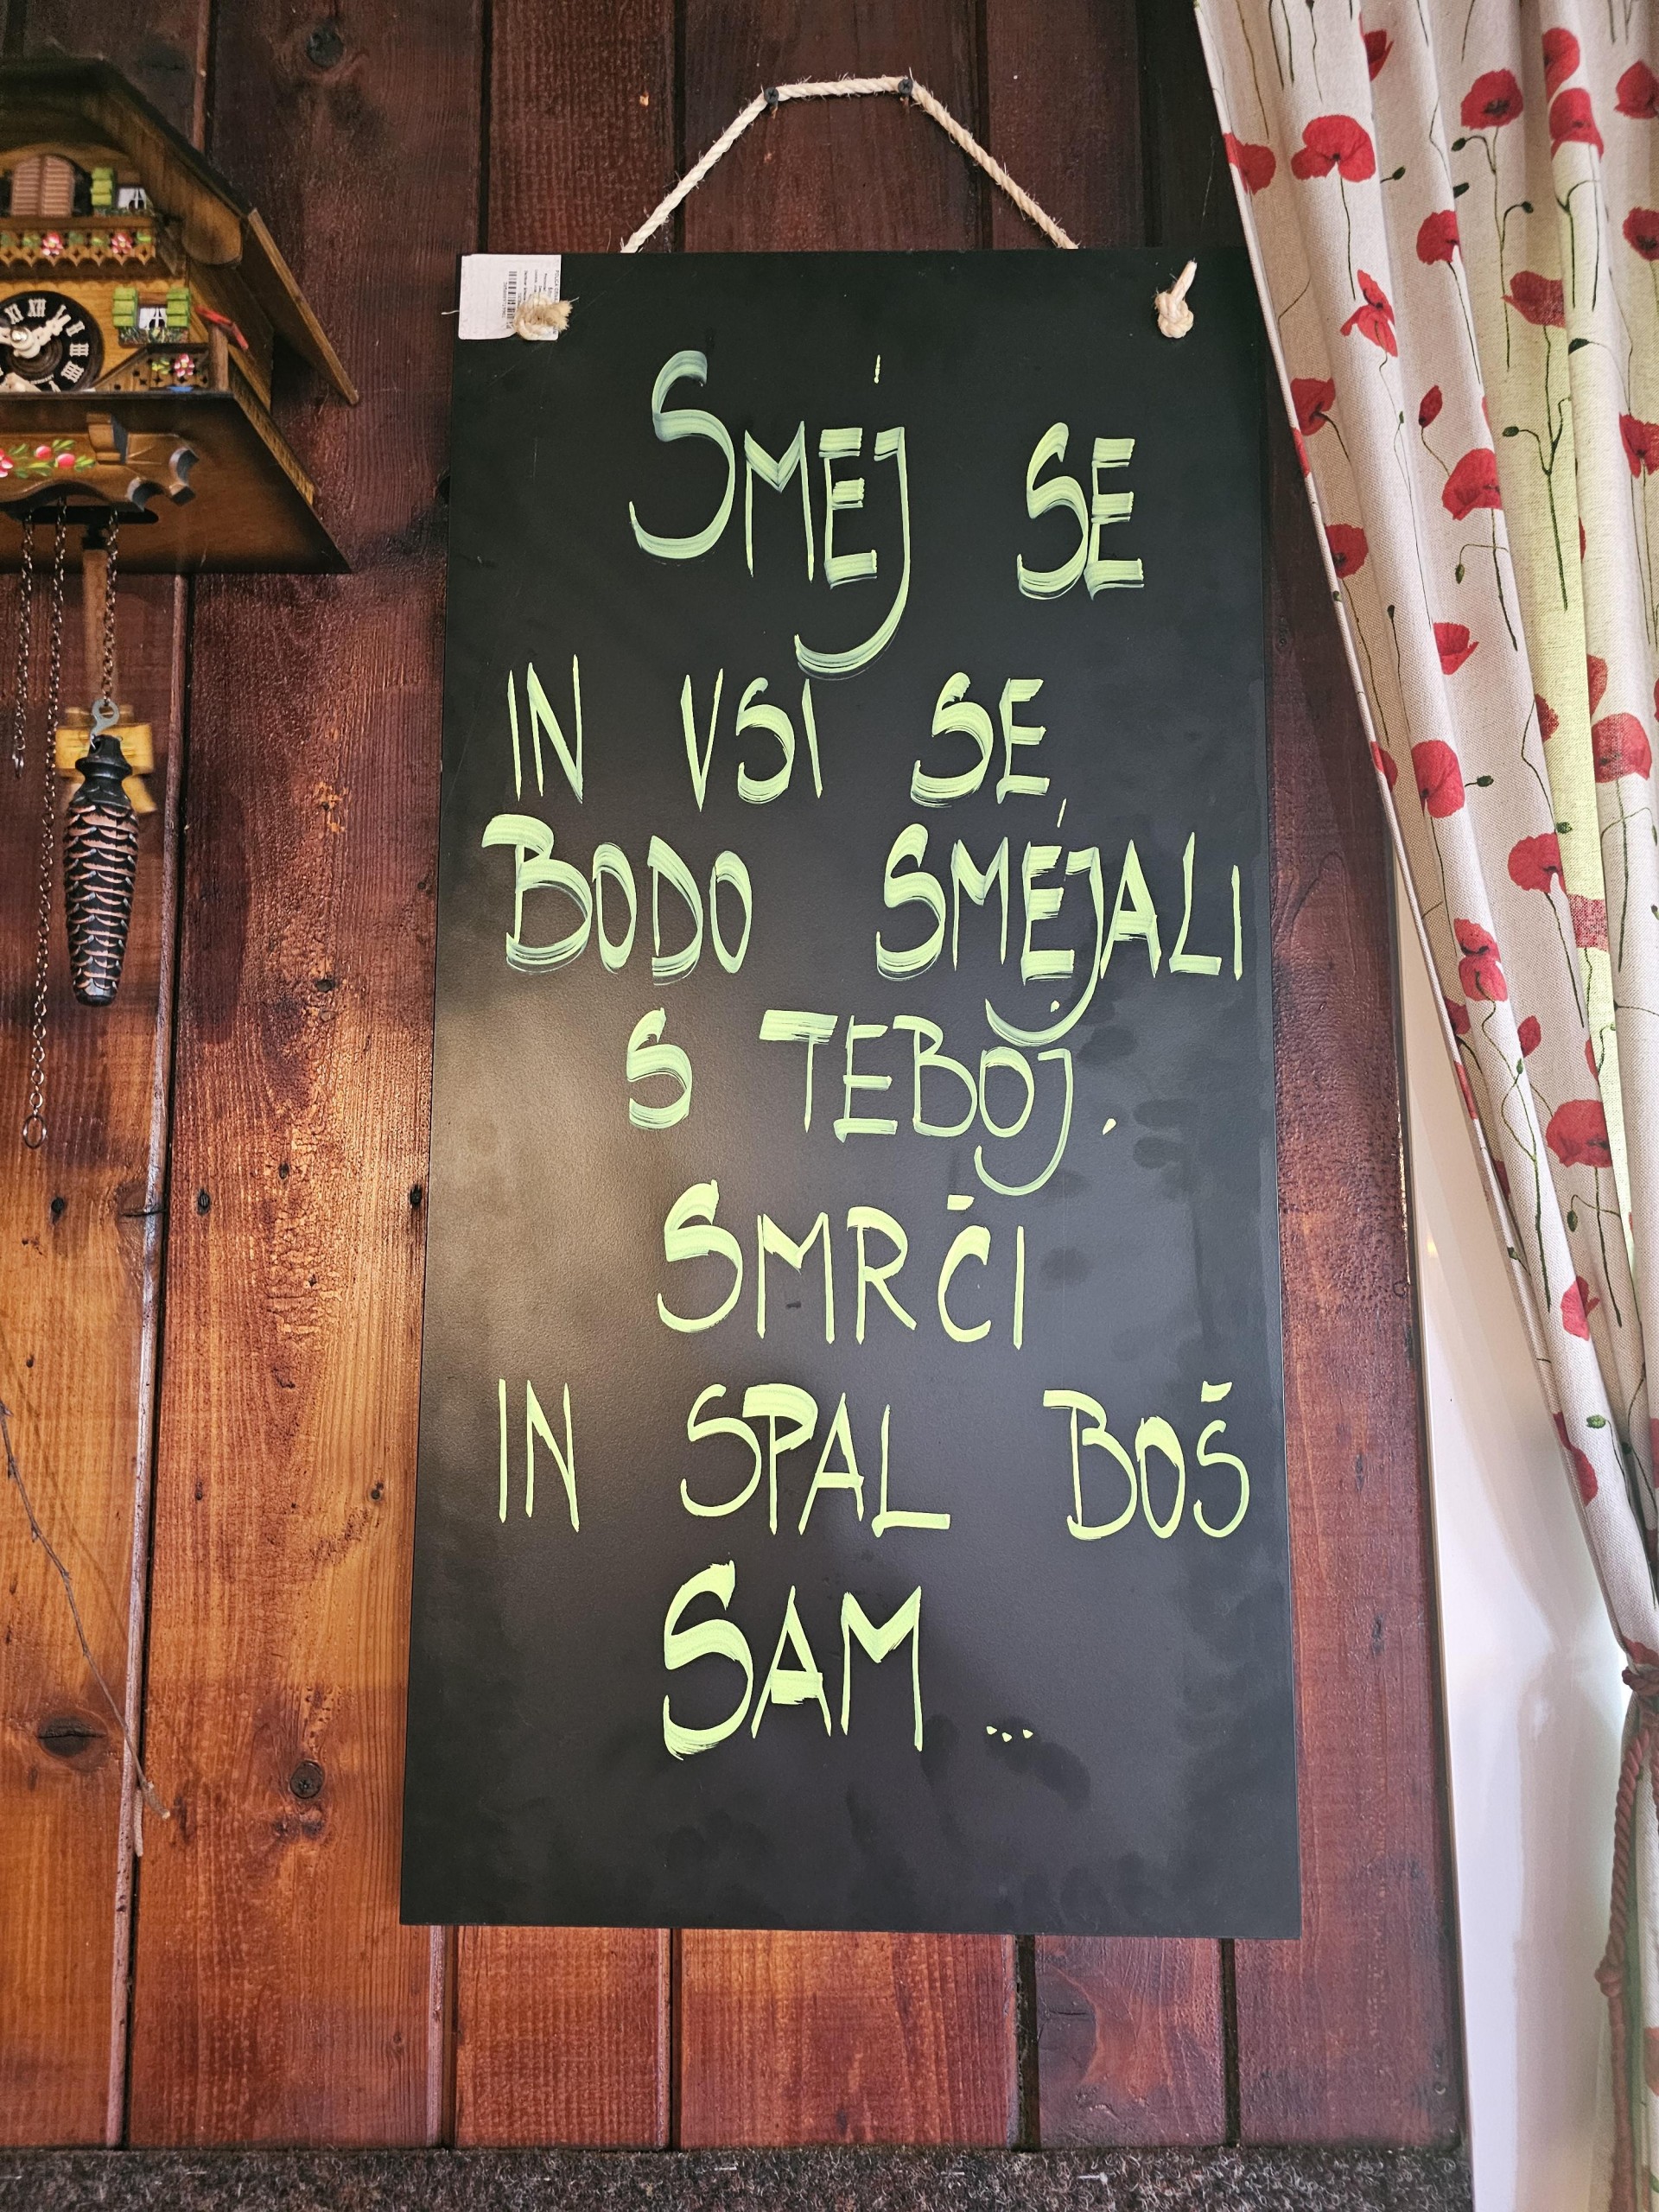 SMEJ SE
IN VSI SE
BODO SMEJALI
S TEBOJ.
SMRČI
IN SPAL BOŠ
SAM...